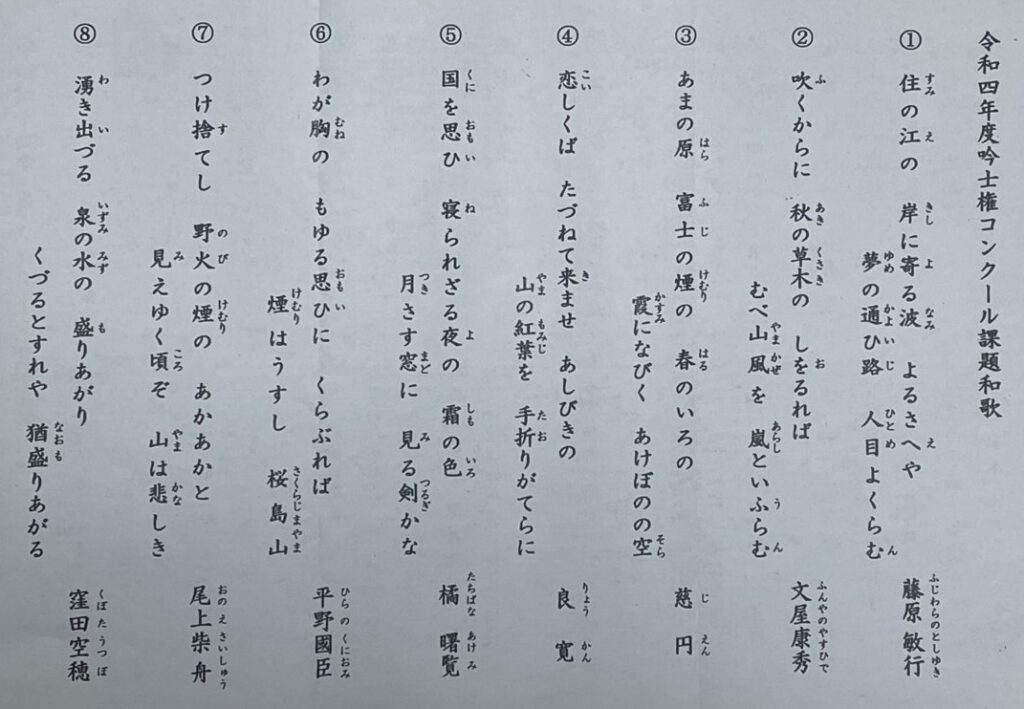 令和四年度吟士権コンクール課題和歌
① 住の江の 岸に寄る波 よるさへや
夢の通ひ路 人目よくらむ 藤原敏行
② 吹くからに 秋の草木の しをるれば
むべ山風を 嵐といふらむ 文屋康秀
③ あまの原 富士の煙の 春のいろの
霞になびく あけぼのの空 慈円
④ 恋しくば たづねて来ませ あしびきの
山の紅葉を 手折りがてらに 良寛
⑤ 国を思ひ 寝られざる夜の 霜の色
月さす窓に 見る剣かな 橘曙覧
⑥ わが胸の もゆる思ひに くらぶれば
煙はうすし 桜島山 平野國臣
⑦ つけ捨てし 野火の煙の あかあかと
見えゆく頃ぞ 山は悲しき 尾上柴舟
⑧ 湧き出づる 泉の水の 盛りあがり
くづるとすれや 猶盛りあがる 窪田空穂